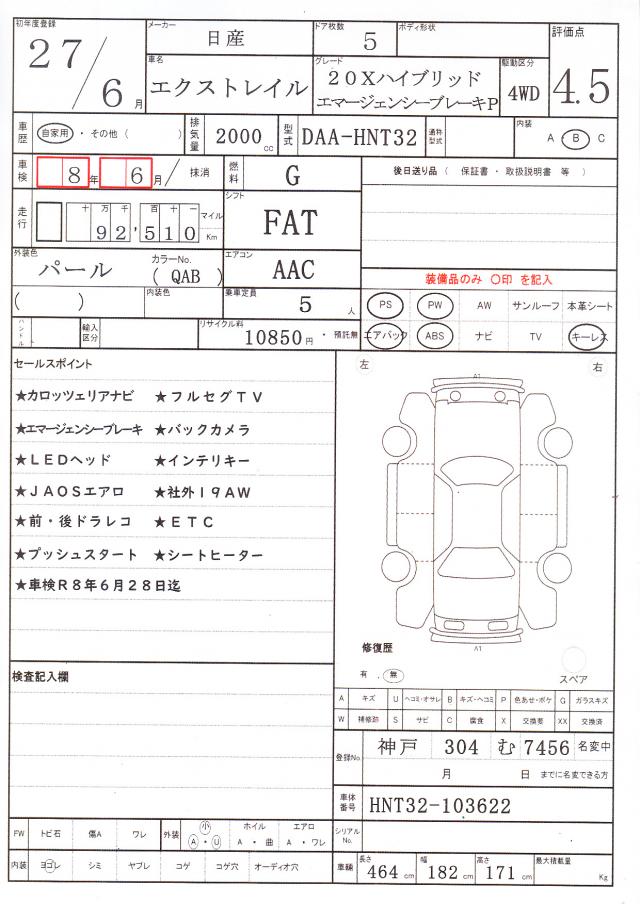 初年度登録 27/6月
メーカー 日産
ドア枚数 5
ボディ形状
評価点 4.5
車名 エクストレイル
グレード 20Xハイブリッド
エマージェンシーブレーキP
駆動区分 4WD
車歴 自家用 ・ その他 ( )
排気量 2000 cc
型式 DAA-HNT32
通称型式
内装 A ・ B C
車検 8年 6月 / 抹消
燃料 G
後日送り品 ( 保証書 ・ 取扱説明書 等 )
走行 十 万 千 百 十 一 マイル Km
92,510
シフト FAT
外装色 パール
カラーNo. ( QAB )
エアコン AAC
装備品のみ 〇印 を記入
( )
内装色
乗車定員 5 人
PS PW AW サンルーフ 本革シート
エアバック ABS ナビ TV キーレス
ハンドル
輸入区分
リサイクル料 10850 円 ・ 預託無
セールスポイント
★カロッツェリアナビ ★フルセグTV
★エマージェンシーブレーキ ★バックカメラ
★LEDヘッド ★インテリキー
★JAOSエアロ ★社外19AW
★前・後ドラレコ ★ETC
★プッシュスタート ★シートヒーター
★車検R8年6月28日迄
左 右
A1
A1
修復歴
有 . 無
スペア
検査記入欄
A キズ U ヘコミ・オサレ B キズ・ヘコミ P 色あせ・ボケ G ガラスキズ
W 補修跡 S サビ C 腐食 X 交換要 XX 交換済
登録No. 神戸 304 む 7456 名変中
月 日 までに名変できる方
車体番号 HNT32-103622
シリアルNo.
FW トビ石 傷A ワレ
外装 小 A ・ U
ホイル A ・ 曲
エアロ A ・ ワレ
内装 ヨゴレ シミ ヤブレ コゲ コゲ穴 オーディオ穴
車輌 長さ 464 cm 幅 182 cm 高さ 171 cm 最大積載量 Kg